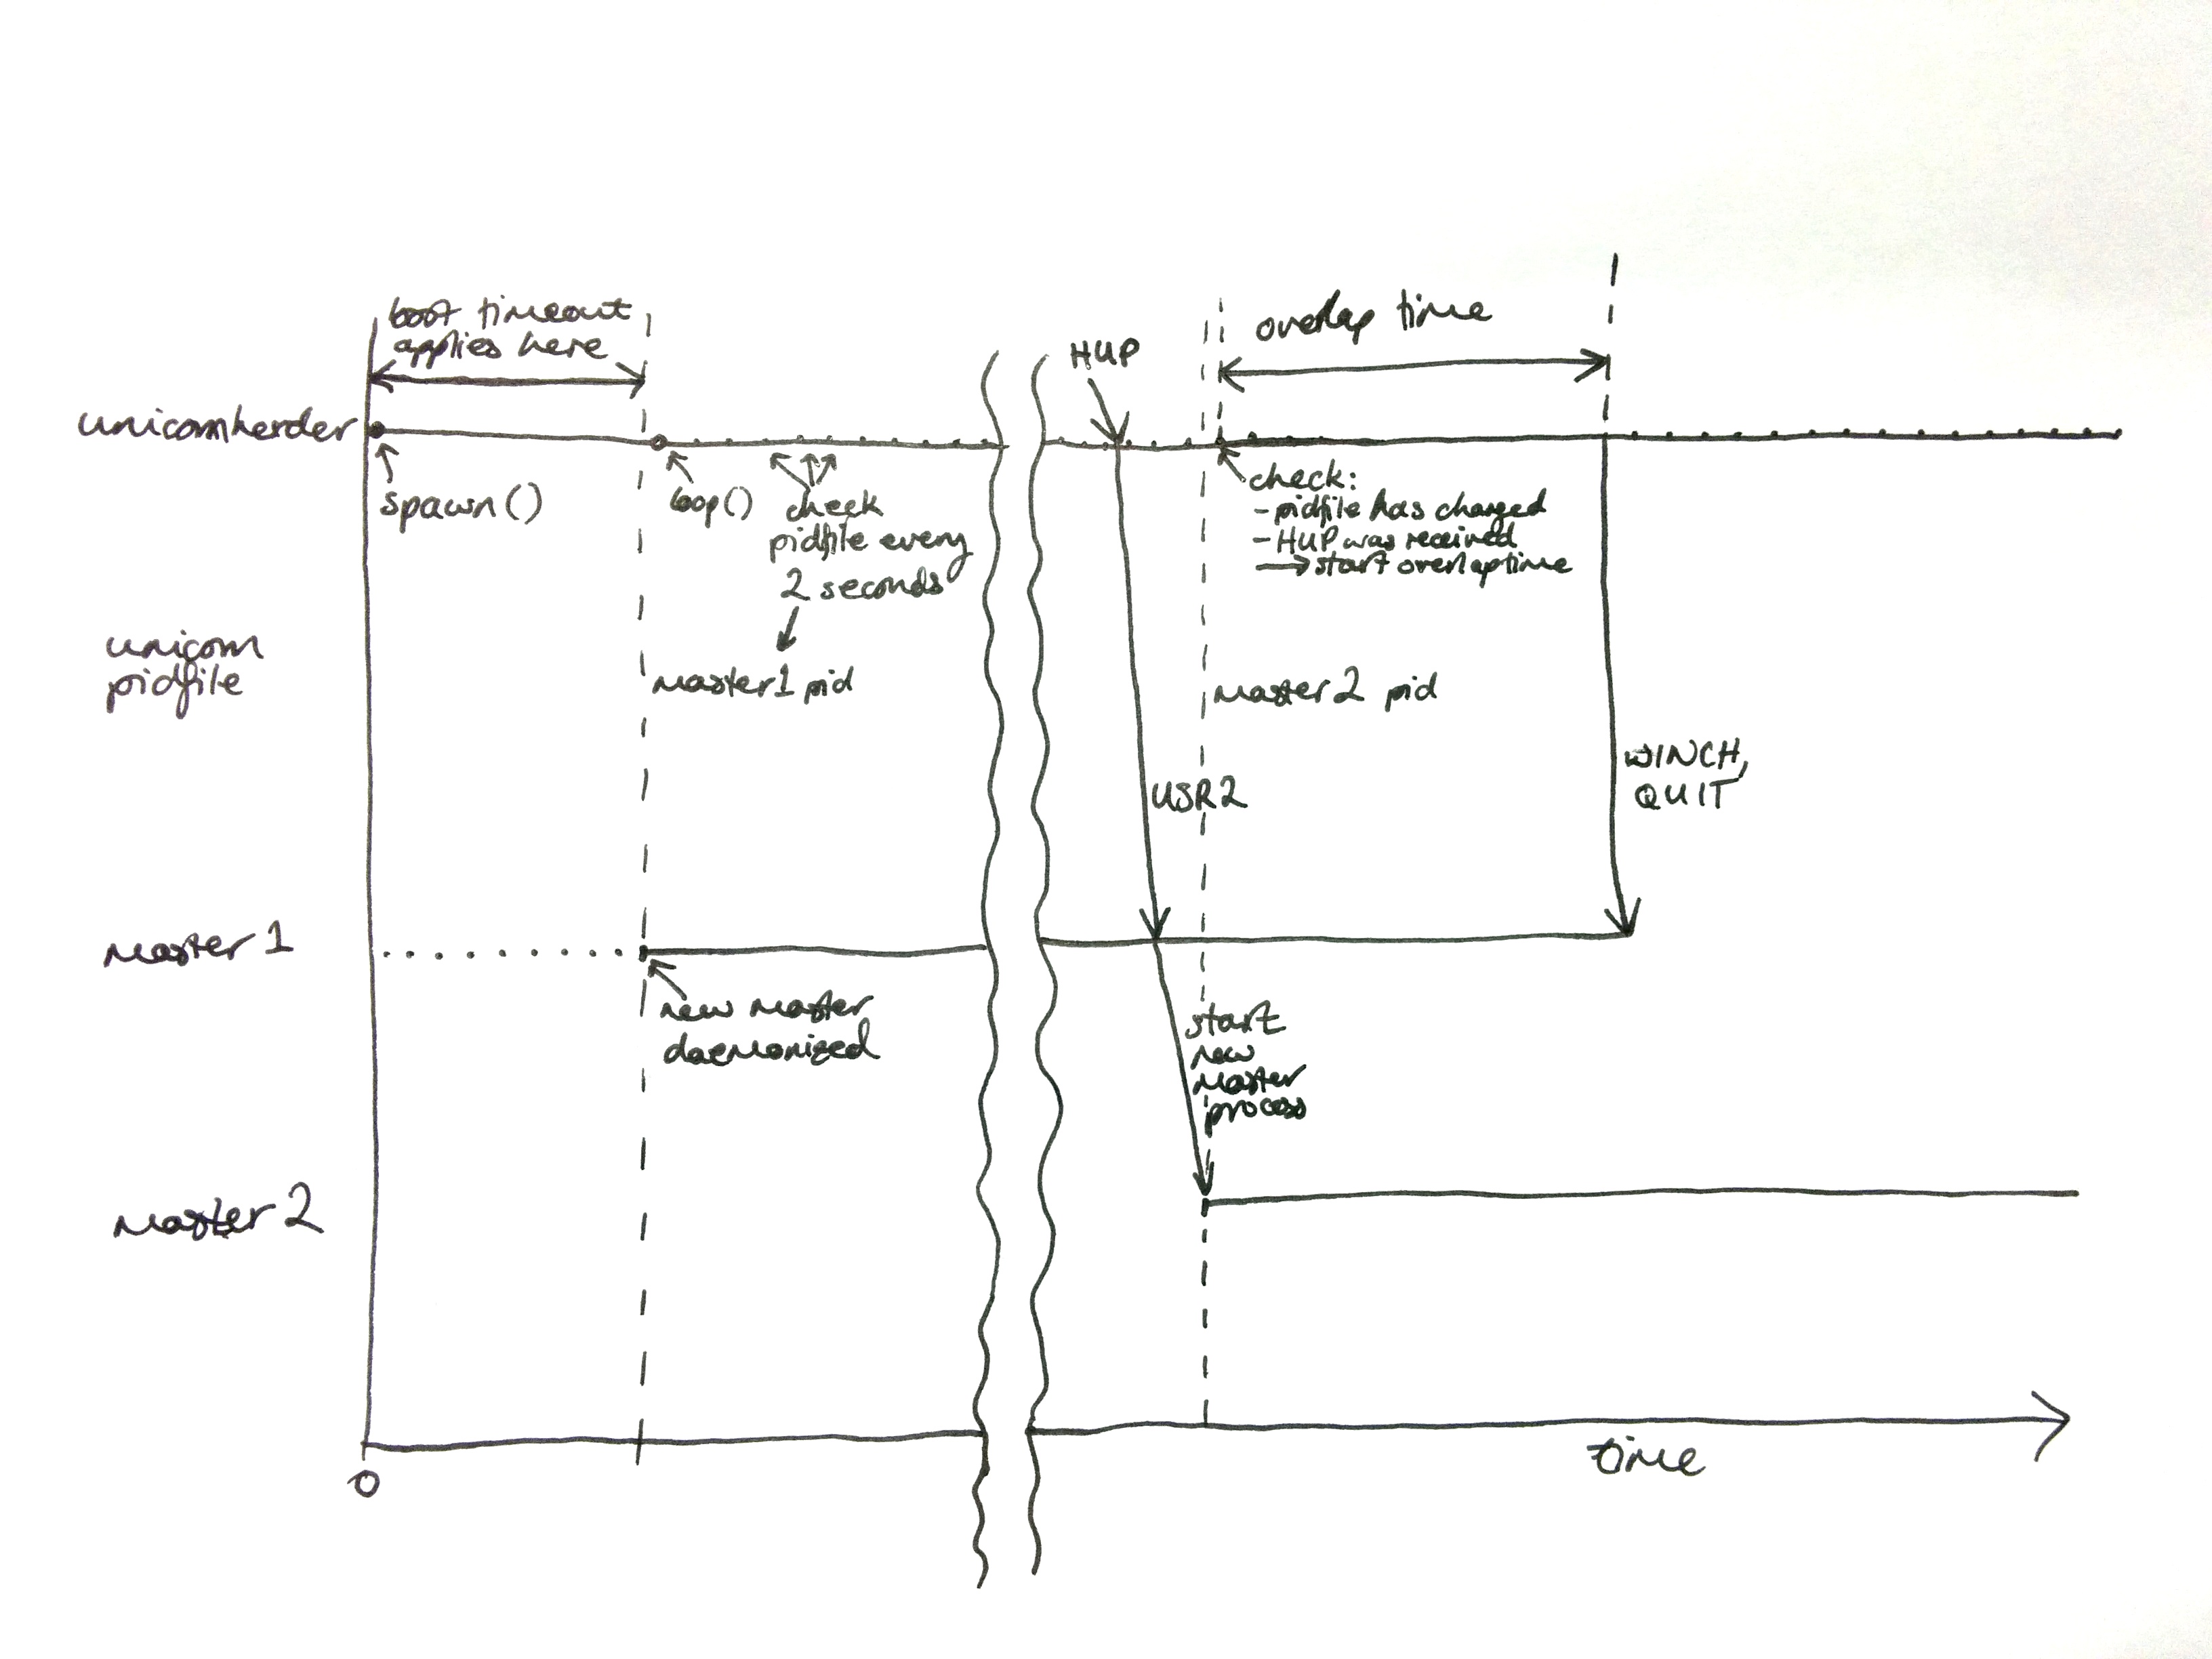 boot timeout
applies here
overlap time
HUP
unicornherder
spawn()
loop()
check
pidfile every
2 seconds
check:
- pidfile has changed
- HUP was received
→ start overlap time
unicorn
pidfile
master1 pid
master2 pid
WINCH,
QUIT
USR2
master 1
new master
daemonized
start
new
master
process
master 2
time
0